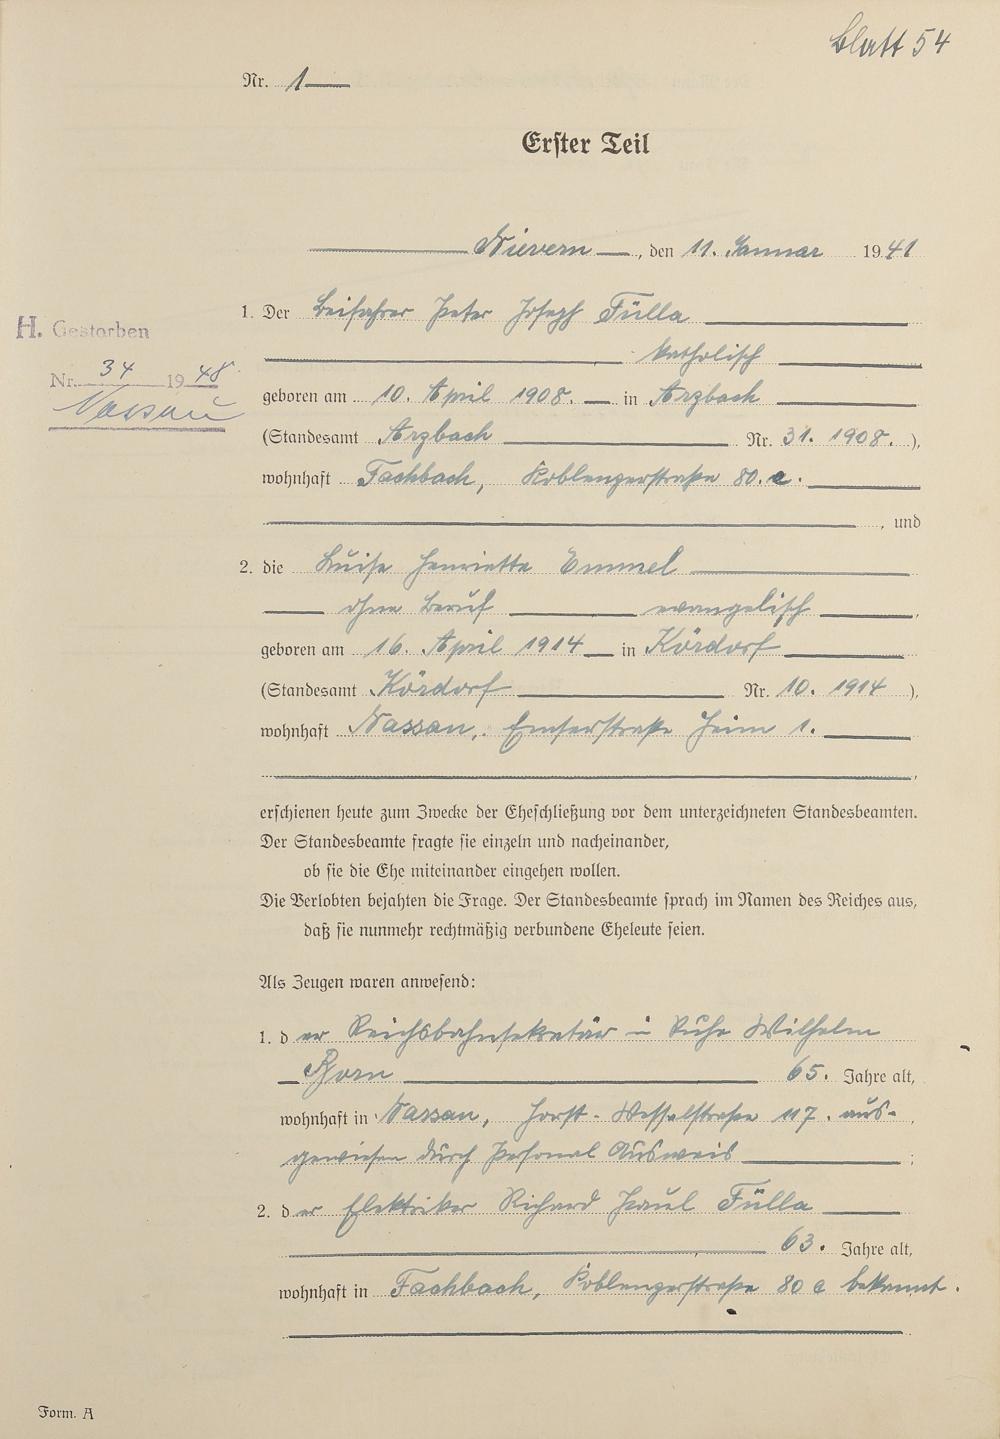 Blatt 54
Nr. 1
Erster Teil
Nievern, den 11. Januar 1941
1. Der Beifahrer Peter Joseph Fülla
katholisch
H. Gestorben
Nr. 34 1948
Nassau
geboren am 10. April 1908. in Arzbach
(Standesamt Arzbach Nr. 31. 1908.),
wohnhaft Fachbach, Koblenzerstraße 80. c.
, und
2. die Luise Henriette Emmel
ohne Beruf evangelisch,
geboren am 16. April 1914 in Kördorf
(Standesamt Kördorf Nr. 10. 1914),
wohnhaft Nassau, Emserstraße Heim 1.
erschienen heute zum Zwecke der Eheschließung vor dem unterzeichneten Standesbeamten.
Der Standesbeamte fragte sie einzeln und nacheinander,
ob sie die Ehe miteinander eingehen wollen.
Die Verlobten bejahten die Frage. Der Standesbeamte sprach im Namen des Reiches aus,
daß sie nunmehr rechtmäßig verbundene Eheleute seien.
Als Zeugen waren anwesend:
1. der Reichsbahnsekretär i Ruhe Wilhelm
Born 65. Jahre alt,
wohnhaft in Nassau, Horst-Wesselstraße 117. aus-
gewiesen durch Personal Ausweis;
2. der Elektriker Richard Paul Fülla
63. Jahre alt,
wohnhaft in Fachbach, Koblenzerstraße 80 c bekannt.
Form. A